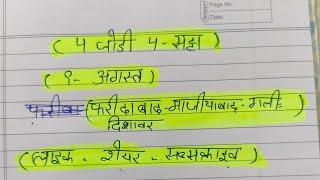 Page No.
Date
(4 जोडी 4-सट्टा)
(९- अगस्त)
(फरीदाबाद-गाजीयाबाद-गली-
दिशावर
(लाइक - शेयर - सब्सक्राइब)